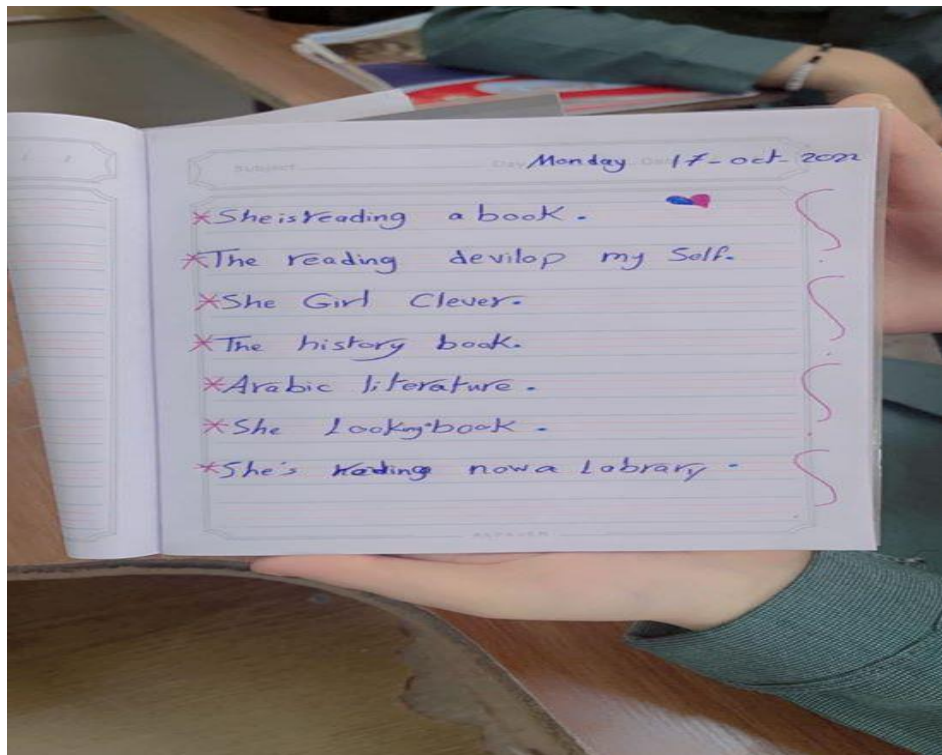 Subject Day Monday Date 17-oct 2022
*She is reading a book.
*The reading devilop my Self.
*She Girl Clever.
*The history book.
*Arabic literature.
*She Looking book.
*She's reading now a Labrary.